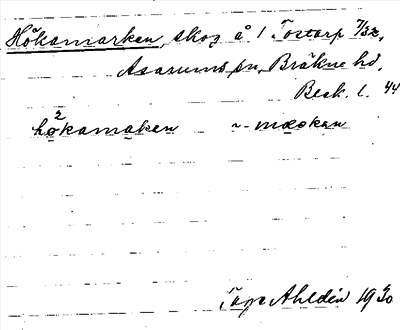 Hökamarken, skog å 1 Tostarp 7/32,
Asarums sn, Bräkne hd,
Besk. l. 44
2
hökamaken ~-mæokan
Tage Ahldén 1930